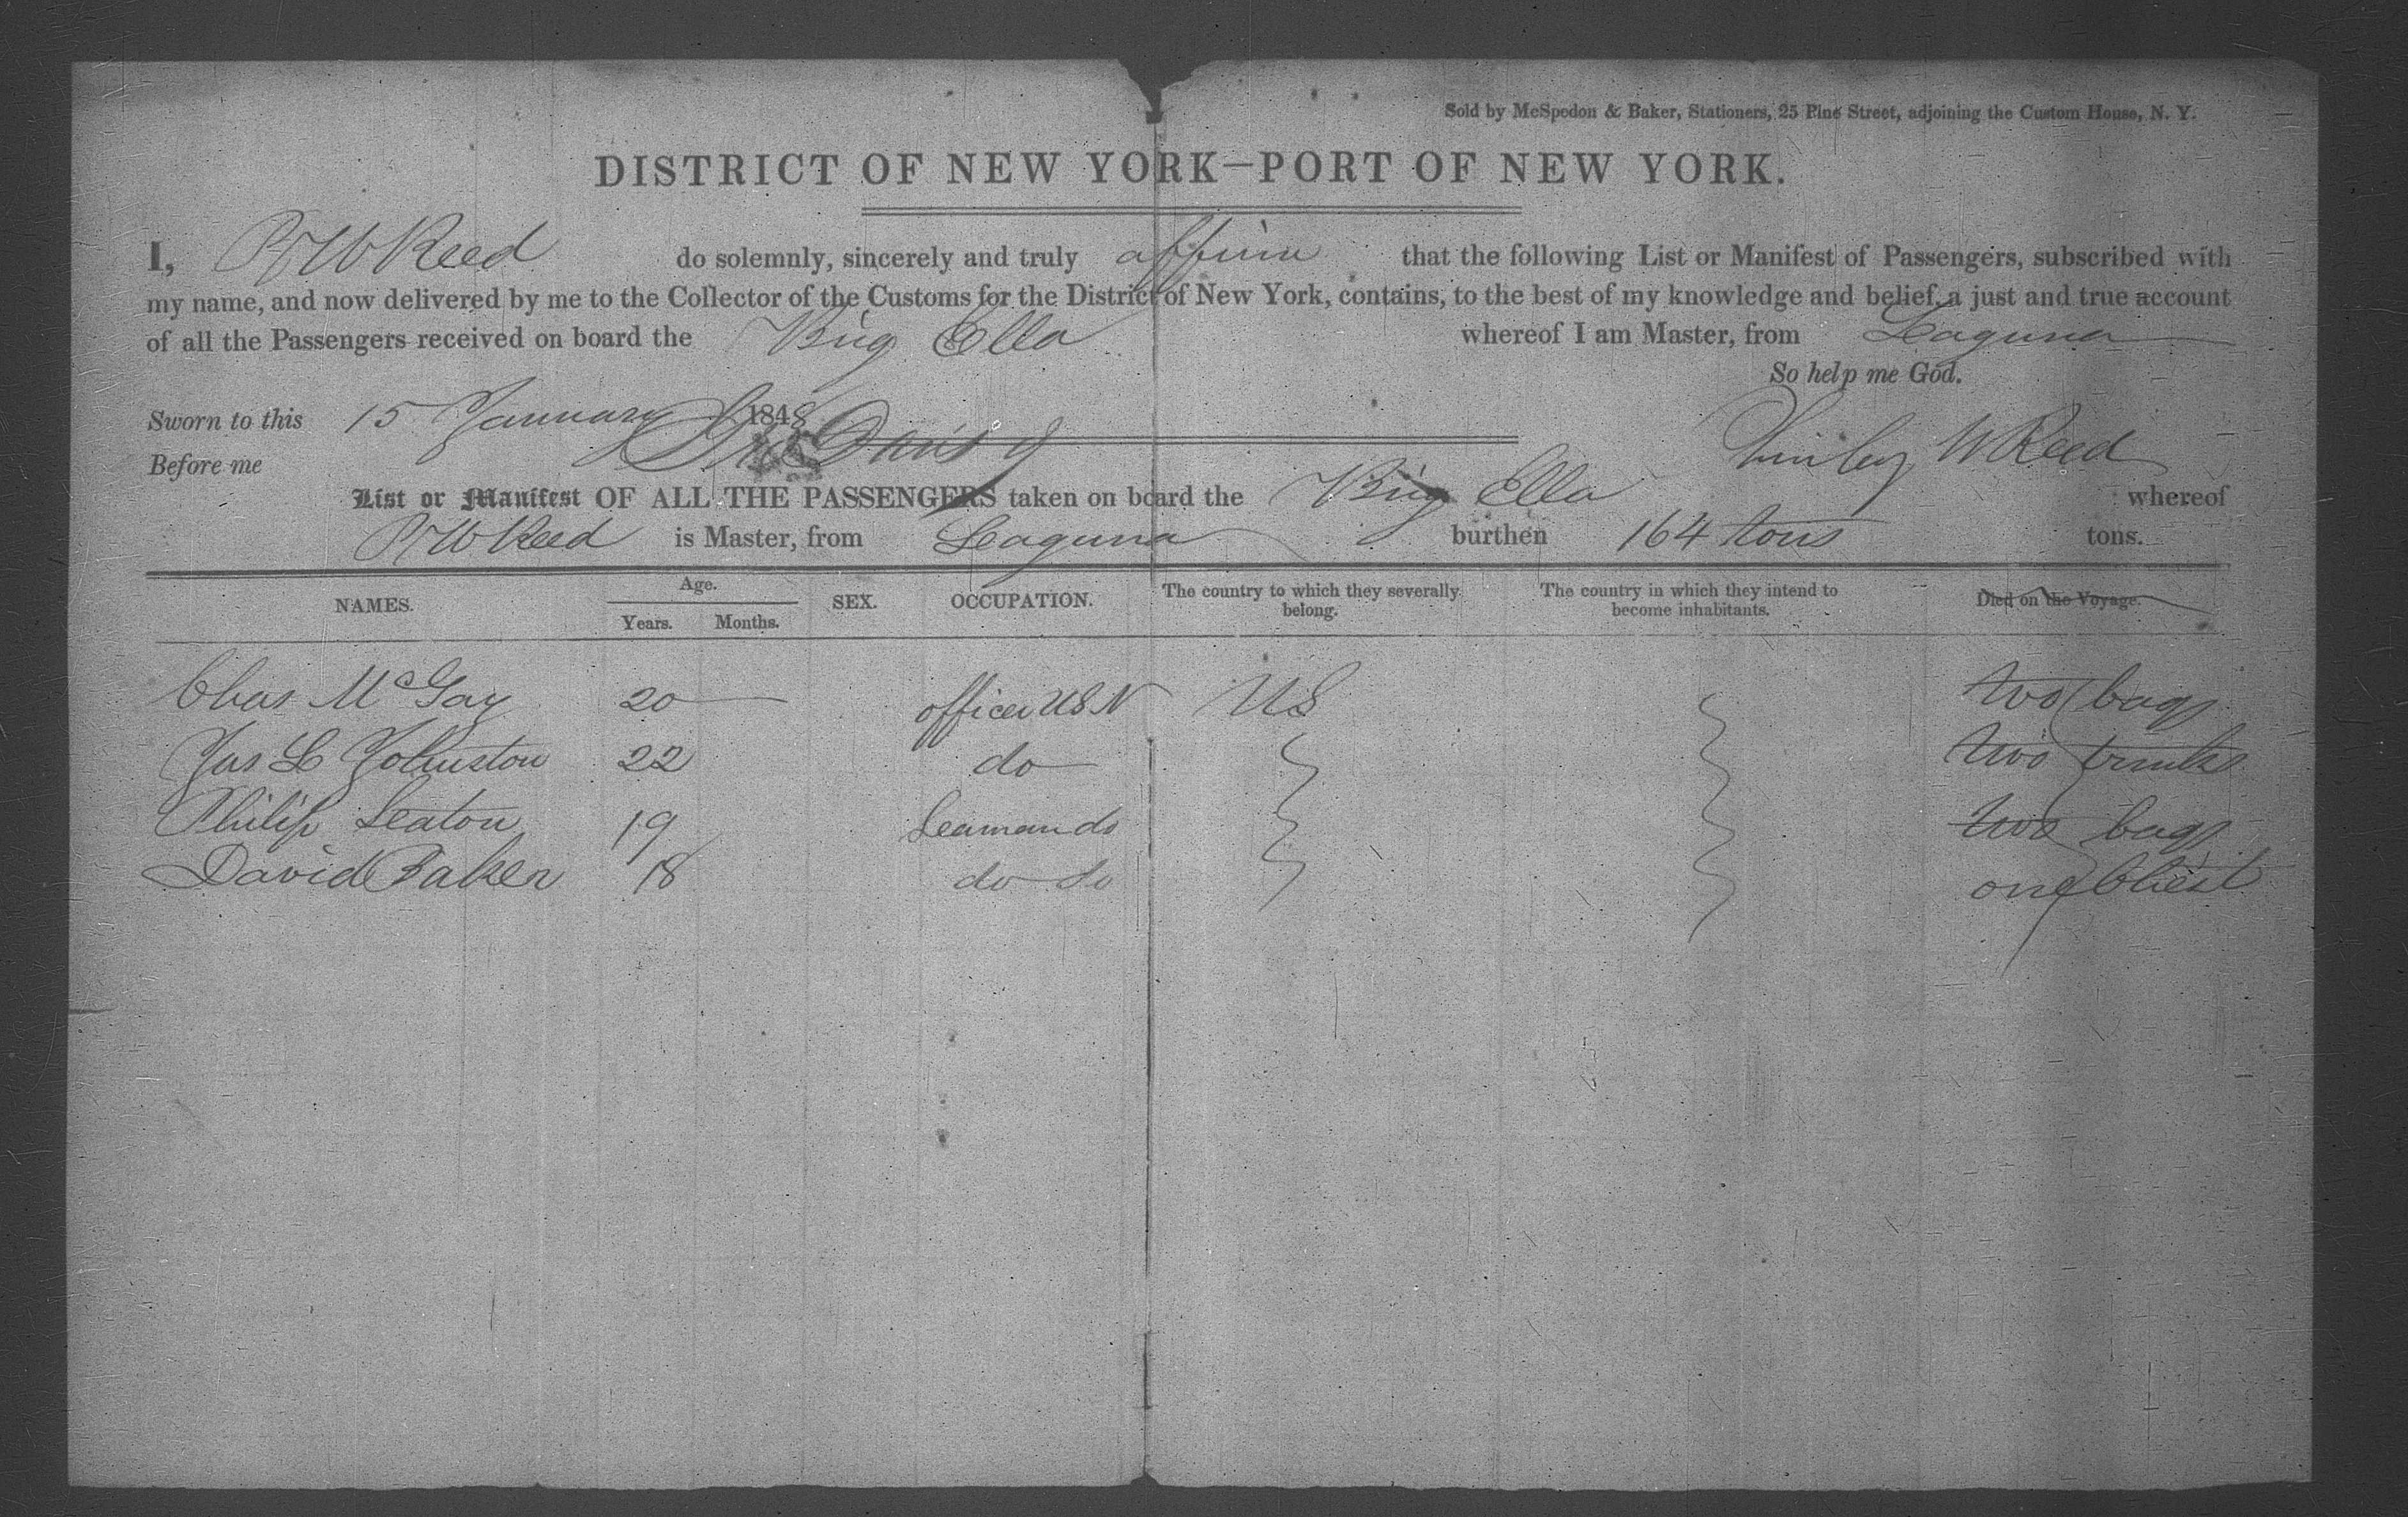 Sold by McSpedon & Baker, Stationers, 25 Pine Street, adjoining the Custom House, N. Y.
DISTRICT OF NEW YORK—PORT OF NEW YORK.
I, P W Reed do solemnly, sincerely and truly affirm that the following List or Manifest of Passengers, subscribed with
my name, and now delivered by me to the Collector of the Customs for the District of New York, contains, to the best of my knowledge and belief, a just and true account
of all the Passengers received on board the Brig Ella whereof I am Master, from Laguna
So help me God.
Sworn to this 15 January 1848
Before me Davis W Reed
List or Manifest OF ALL THE PASSENGERS taken on board the Brig Ella whereof
P W Reed is Master, from Laguna burthen 164 tons tons.
NAMES. Age. Years. Months. SEX. OCCUPATION. The country to which they severally belong. The country in which they intend to become inhabitants. Died on the Voyage.
Chas McGay 20 officer USN US two bags
Jas L Johnston 22 do two trunks
Philip Seaton 19 Seaman do two bags
David Baker 18 do do one Chest